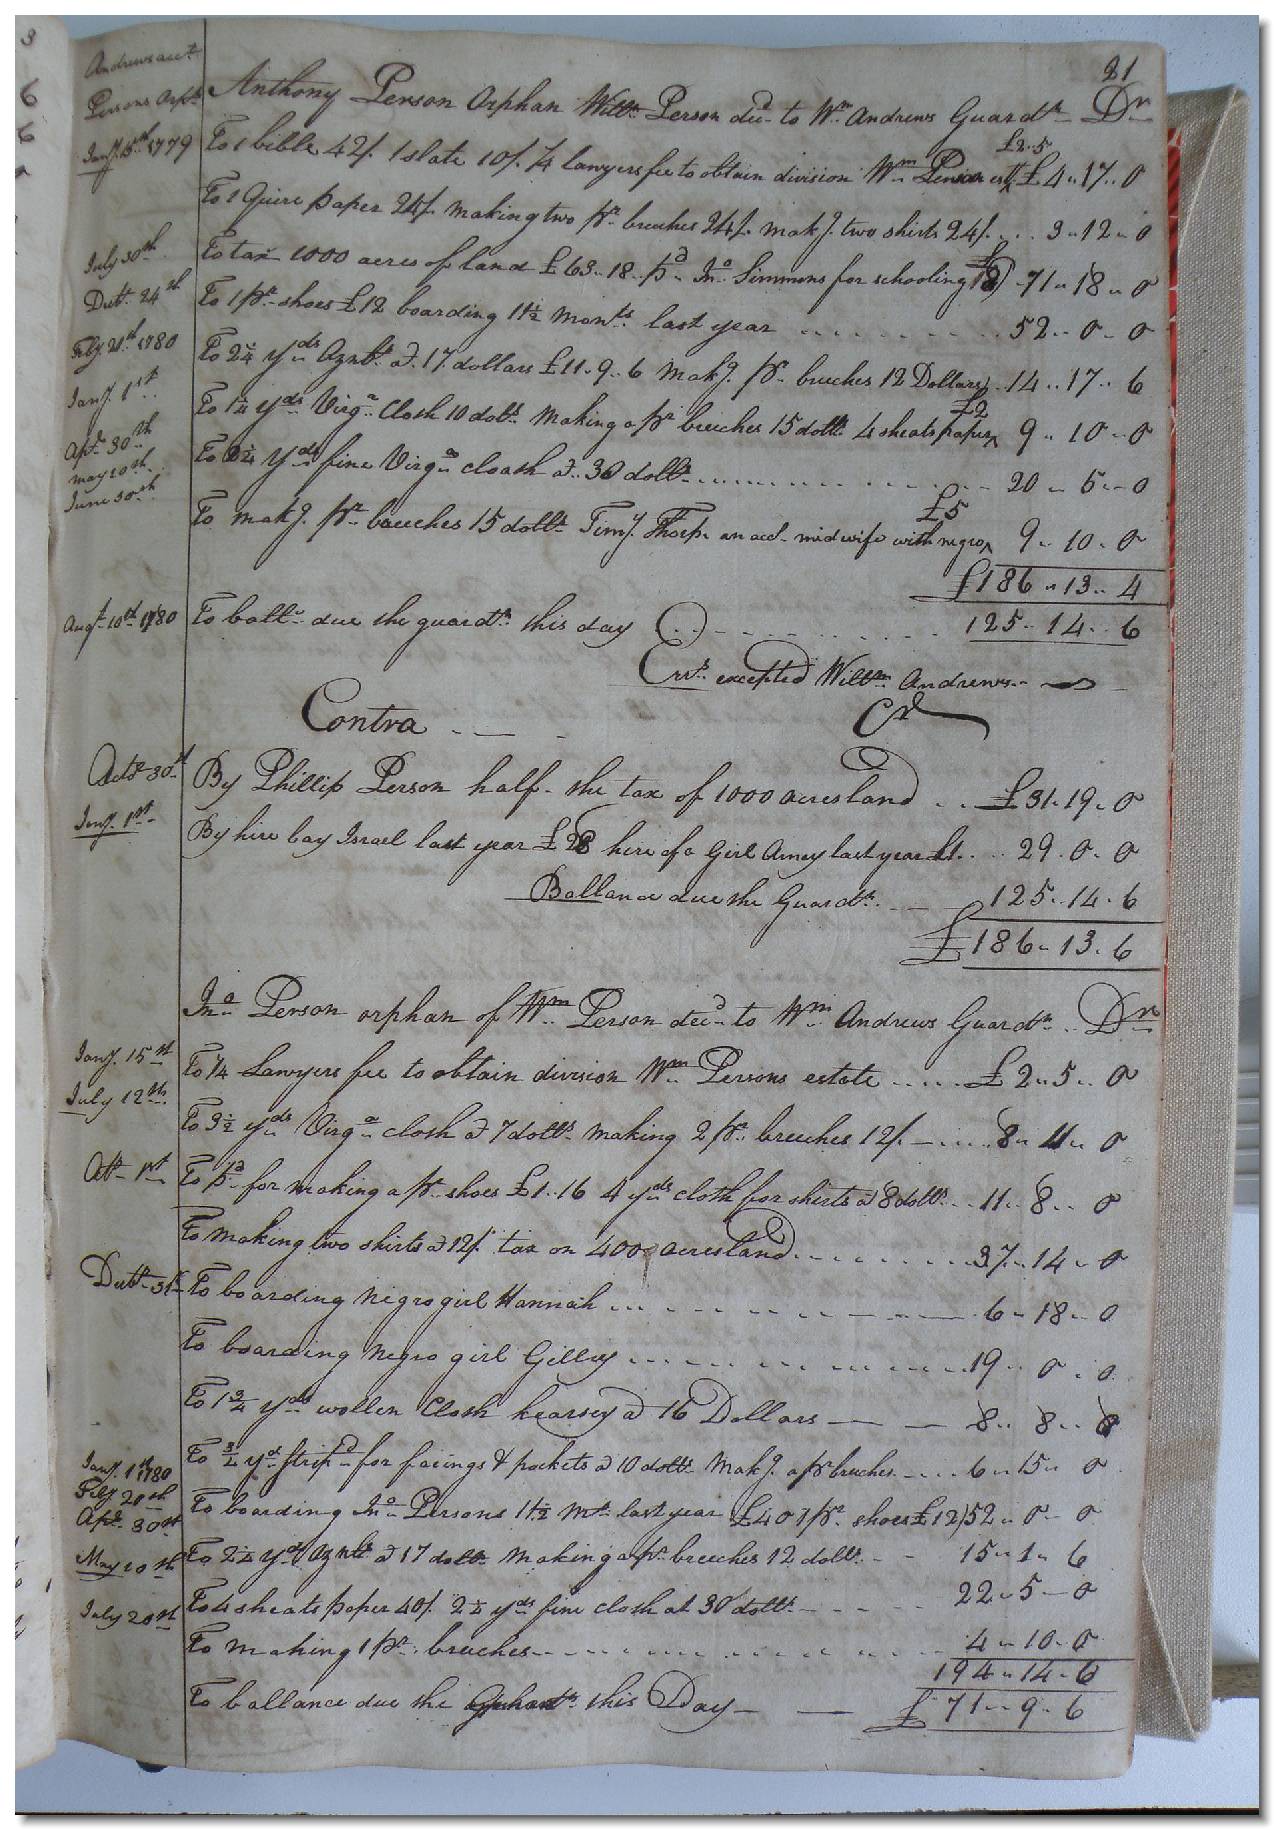 21
Andrews acct
Persons Orpn
Anthony Person Orphan Willm Person decd to Wm Andrews Guardn Dr
£2.5
Jany 15th 1779 To 1 bible 42/. 1 slate 10/. 1/4 lawyers fee to obtain division Wm Person est £4..17..0
To 1 Quire paper 24/. making two pr breeches 24/. makg two shirts 24/. 3..12..0
July 30th To tax 1000 acres of land £63..18 pd Jno Simmons for schooling £8) 71..18..0
Decr 24th To 1 pr shoes £12 boarding 11½ months last year 52..0..0
Feby 21st 1780 To 2¼ yds Oznbs @ 17 dollars £11..9..6 makg pr breeches 12 Dollars 14..17..6
£2
Jany 1st To 1¼ yds Virga Cloth 10 dolls Making a pr breeches 15 dolls 4 sheats paper 9..10..0
Apr 30th To 2¼ yds fine Virga cloath @ 30 dolls 20..5..0
may 10th
£5
June 30th To makg pr breeches 15 dolls Timy Thorp an acct midwife with negro 9..10..0
£186..13..4
Augt 10th 1780 To balle due the guardn this day 125..14..6
Errs excepted Willm Andrews
Contra Cr
Octr 30th By Phillip Person half the tax of 1000 acres land £31..19..0
Jany 1st By hire boy Israel last year £28 hire of a Girl Amey last year £1 29..0..0
Ballance due the Guardn 125..14..6
£186..13..6
Jno Person orphan of Wm Person decd to Wm Andrews Guardn Dr
Jany 15th To 1/4 Lawyers fee to obtain division Wm Persons estate £2..5..0
July 12th To 3½ yds Virga cloth @ 7 dolls making 2 pr breeches 12/. 8..11..0
Oct 1st To pd for making a pr shoes £1..16 4 yds cloth for shirts @ 8 dolls 11..8..0
To making two shirts @ 12/. tax on 400 acres land 37..14..0
Decr 31st To boarding negro girl Hannah 6..18..0
To boarding negro girl Gilley 19..0..0
To 1¾ yds wollen Cloth kearsey @ 16 Dollars 8..8..0
To ¾ yd stripd for facings & pockets @ 10 dolls Makg a pr breeches 6..15..0
Jany 1st 1780 To boarding Jno Persons 11½ mts last year £40 1 pr shoes £12) 52..0..0
Feby 20th
Apr 30th To 2¼ yds Oznbs @ 17 dolls making a pr breeches 12 dolls 15..1..6
May 10th To 4 sheats paper 40/. 2¼ yds fine cloth at 30 dolls 22..5..0
July 20th To making 1 pr breeches 4..10..0
194..14..6
To ballance due the Orphant this Day £71..9..6